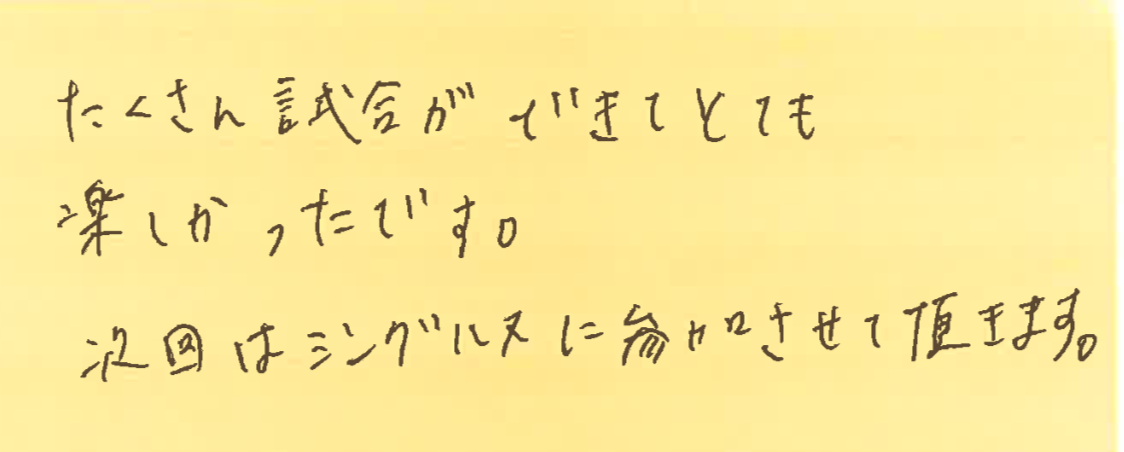 たくさん試合ができてとても
楽しかったです。
次回はシングルスに参加させて頂きます。